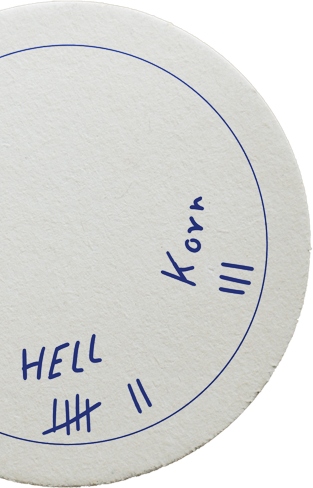 Korn
HELL